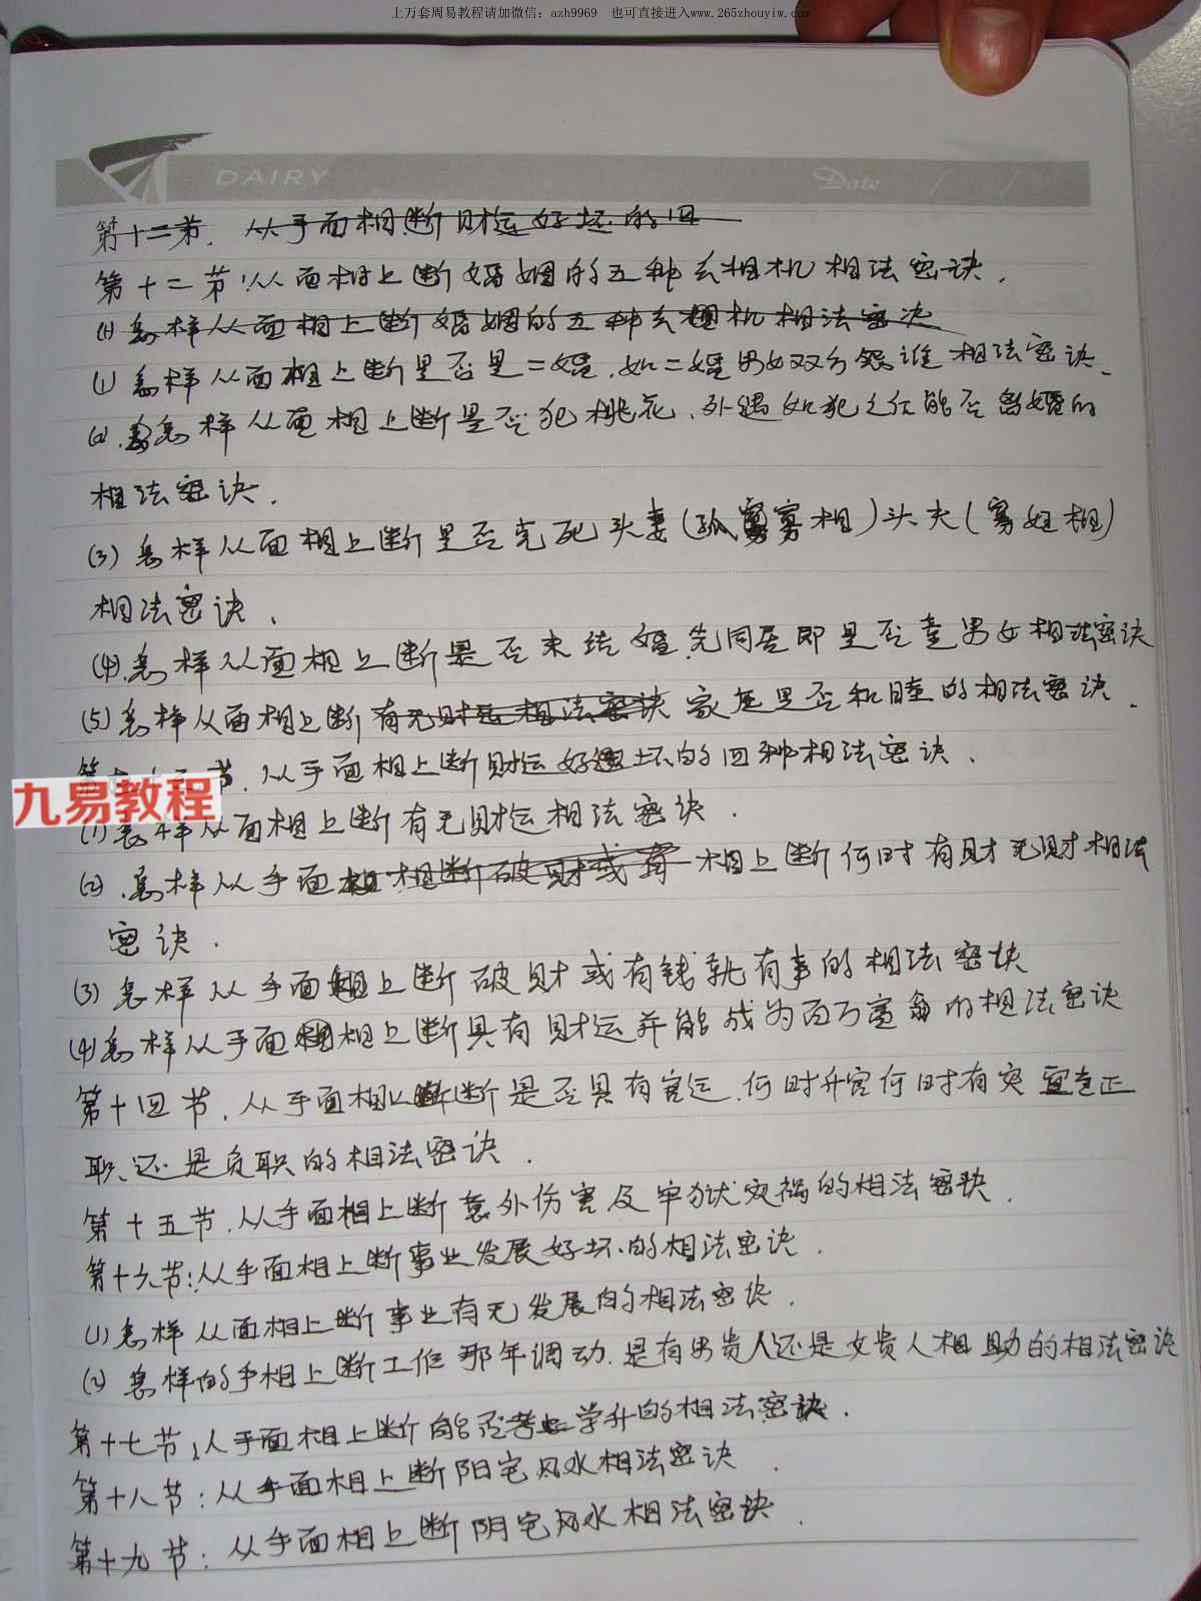 上万套周易教程请加微信：azh9969 也可直接进入www.265zhouyiw.com
DAIRY
Date / /
第十二节. 从手面相断财运好坏的四
第十二节:从面相上断婚姻的五种玄相机相法密诀.
(1)怎样从面相上断婚姻的五种玄相机相法密决
(1)怎样从面相上断是否是二婚.如二婚男女双方怨谁相法密诀.
(2).怎样从面相上断是否犯桃花、外遇如犯之后能否离婚的
相法密诀.
(3)怎样从面相上断是否克死头妻(孤寡相)头夫(寡妇相)
相法密诀.
(4).怎样从面相上断是否未结婚.先同居即是否童男女相法密诀
(5)怎样从面相上断有无财运相法密诀家庭是否和睦的相法密诀.
第十三节.从手面相上断财运好坏的四种相法密诀.
(1)怎样从面相上断有无财运相法密诀.
(2).怎样从手面相断破财或有相上断何时有财无财相法
密诀.
(3)怎样从手面相上断破财或有钱就有事的相法密诀
(4)怎样从手面相上断具有财运并能成为百万富翁的相法密诀
第十四节.从手面相上断是否具有官运.何时升官何时有灾官是正
职还是负职的相法密诀.
第十五节.从手面相上断意外伤害及牢狱灾祸的相法密诀.
第十六节:从手面相上断事业发展好坏的相法密诀.
(1)怎样从面相上断事业有无发展的相法密诀.
(2)怎样的手相上断工作那年调动.是有男贵人还是女贵人相助的相法密诀
第十七节:从手面相上断能否考学升的相法密诀.
第十八节:从手面相上断阳宅风水相法密诀.
第十九节:从手面相上断阴宅风水相法密诀.
九易教程